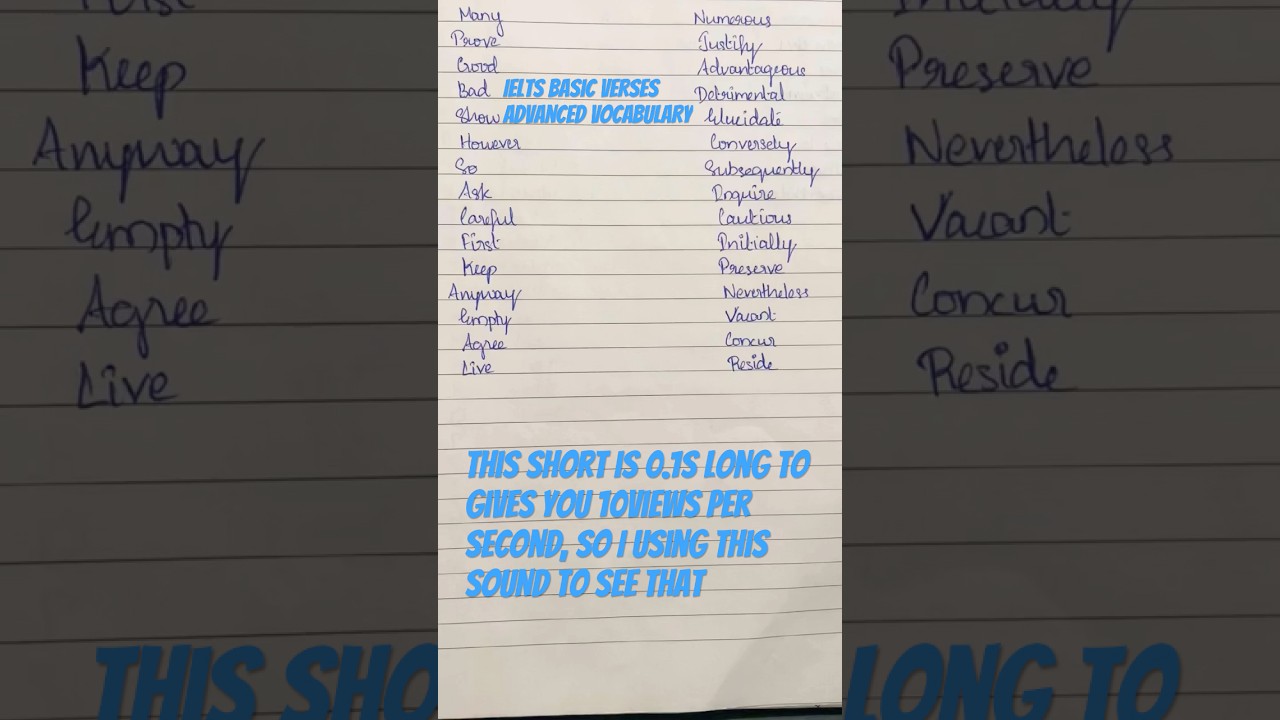 Many Numerous
Prove Justify
Good Advantageous
Bad Detrimental
IELTS BASIC VERSES
Show Elucidate
ADVANCED VOCABULARY
However Conversely
So Subsequently
Ask Inquire
Careful Cautious
First Initially
Keep Preserve
Anyway Nevertheless
Empty Vacant
Agree Concur
Live Reside
THIS SHORT IS 0.1S LONG TO
GIVES YOU 10VIEWS PER
SECOND, SO I USING THIS
SOUND TO SEE THAT
Keep Preserve
Anyway Nevertheless
Empty Vacant
Agree Concur
Live Reside
THIS SHO LONG TO